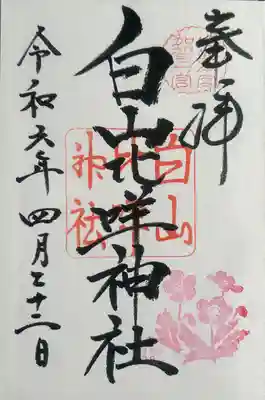 奉拝
白山比咩神社
白山
神社
令和六年四月二十二日